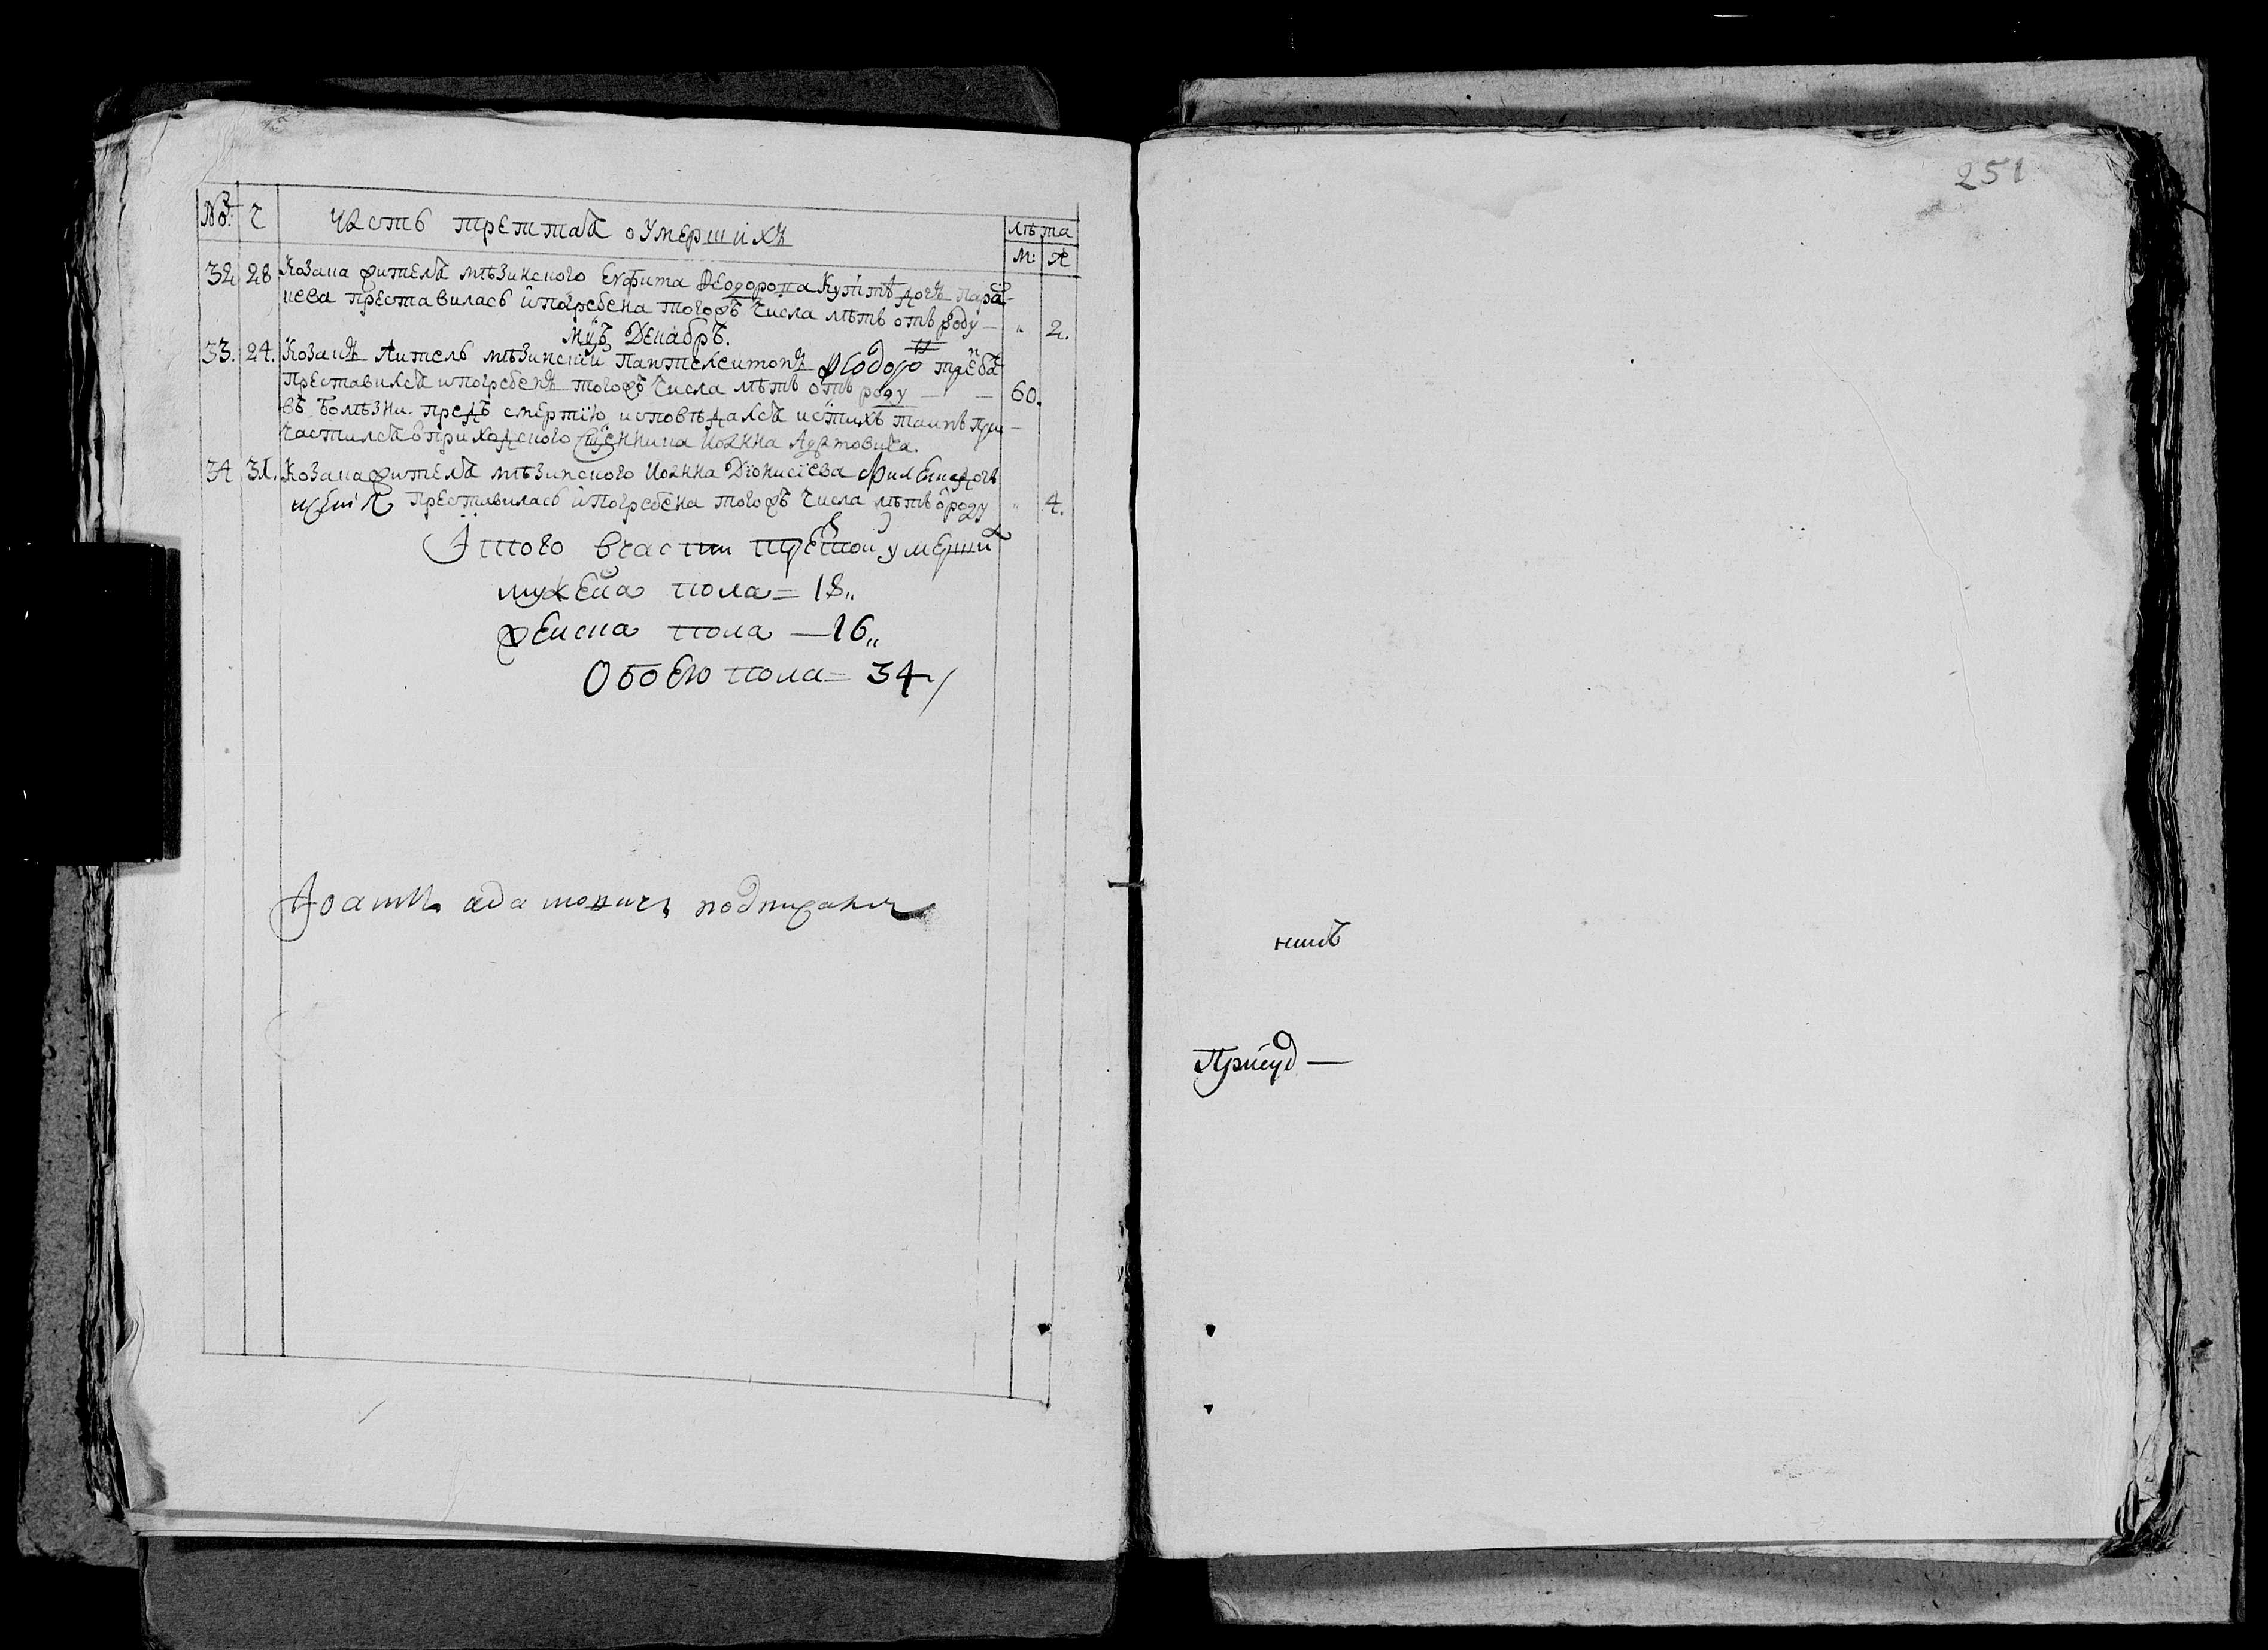 No: ч Часть третѧѧ о умершихъ лѣта
М: Ж
32 28 Козака жителѧ мѣзинского Евфима дочь Пара-
скева преставилась и погребена тогожъ числа лѣтъ отъ роду — „ 2.
Мцъ Декабръ.
33. 24. Козакъ житель мѣзинский Пантелеимонъ
преставилсѧ и погребенъ тогожъ числа лѣтъ отъ роду — — 60.
въ болѣзни предъ смертїю исповѣдалсѧ и стихъ таинъ при-
частилсѧ в приходского сщенника Иоанна Адамовича.
34 31. Козака жителѧ мѣзинского Иоанна Дїонисїева дочь
преставилась и погребена тогожъ числа лѣтъ ѿ роду „ 4.
Итого в части третой умерших
мужеска пола = 18„
женска пола — 16„
Обоего пола = 34
Иоаннъ Адамовичъ подписалсѧ
251
Присуд —